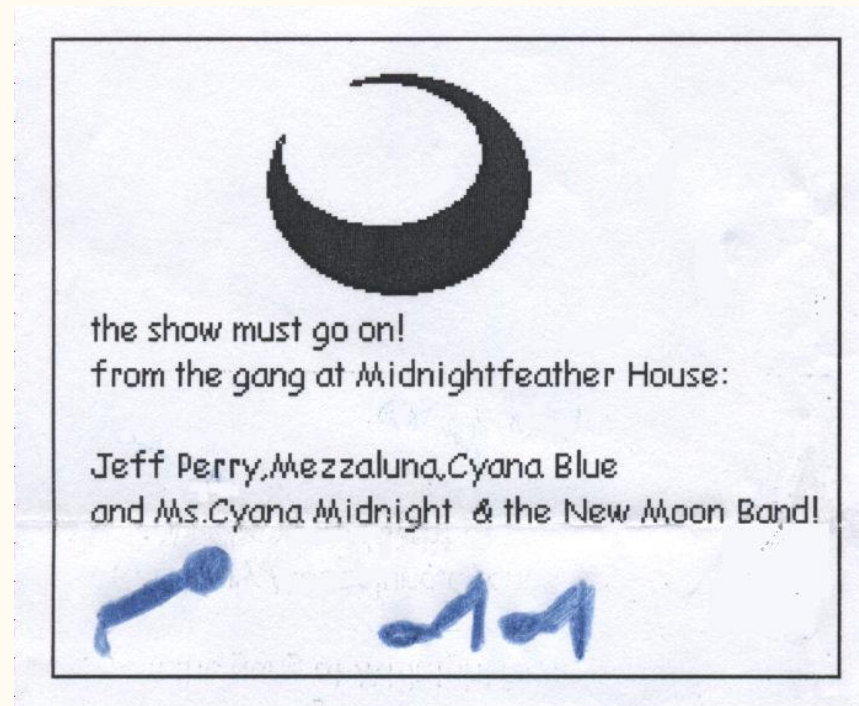 the show must go on!
from the gang at Midnightfeather House:
Jeff Perry,Mezzaluna,Cyana Blue
and Ms.Cyana Midnight & the New Moon Band!